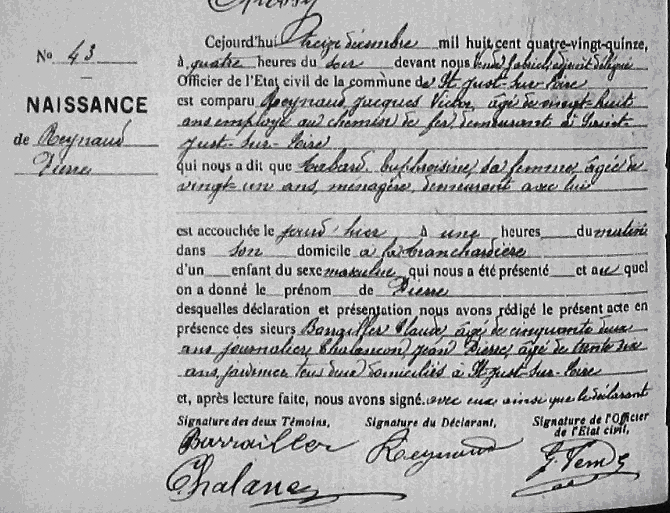 No 43
NAISSANCE
de Reynaud
Pierre
Cejourd'hui treize décembre mil huit cent quatre-vingt-quinze,
à quatre heures du soir devant nous adjoint délégué
Officier de l'Etat civil de la commune de St Just-sur-Loire
est comparu Reynaud, Jacques Victor, âgé de vingt-huit
ans employé au chemin de fer, demeurant à Saint-
Just-sur-Loire
qui nous a dit que sa femme, âgée de
vingt-un ans, ménagère, demeurant avec lui
est accouchée le jourd'hier à une heures du matin
dans son domicile à la
d'un enfant du sexe masculin qui nous a été présenté et au quel
on a donné le prénom de Pierre
desquelles déclaration et présentation nous avons rédigé le présent acte en
présence des sieurs Claude âgé de cinquante
ans journalier, Chalancon Jean Pierre, âgé de trente six
ans, tous deux domiciliés à St Just-sur-Loire
et, après lecture faite, nous avons signé avec eux ainsi que le déclarant
Signature des deux Témoins,
Signature du Déclarant,
Signature de l'Officier
de l'Etat civil,
Barrailler
Reynaud